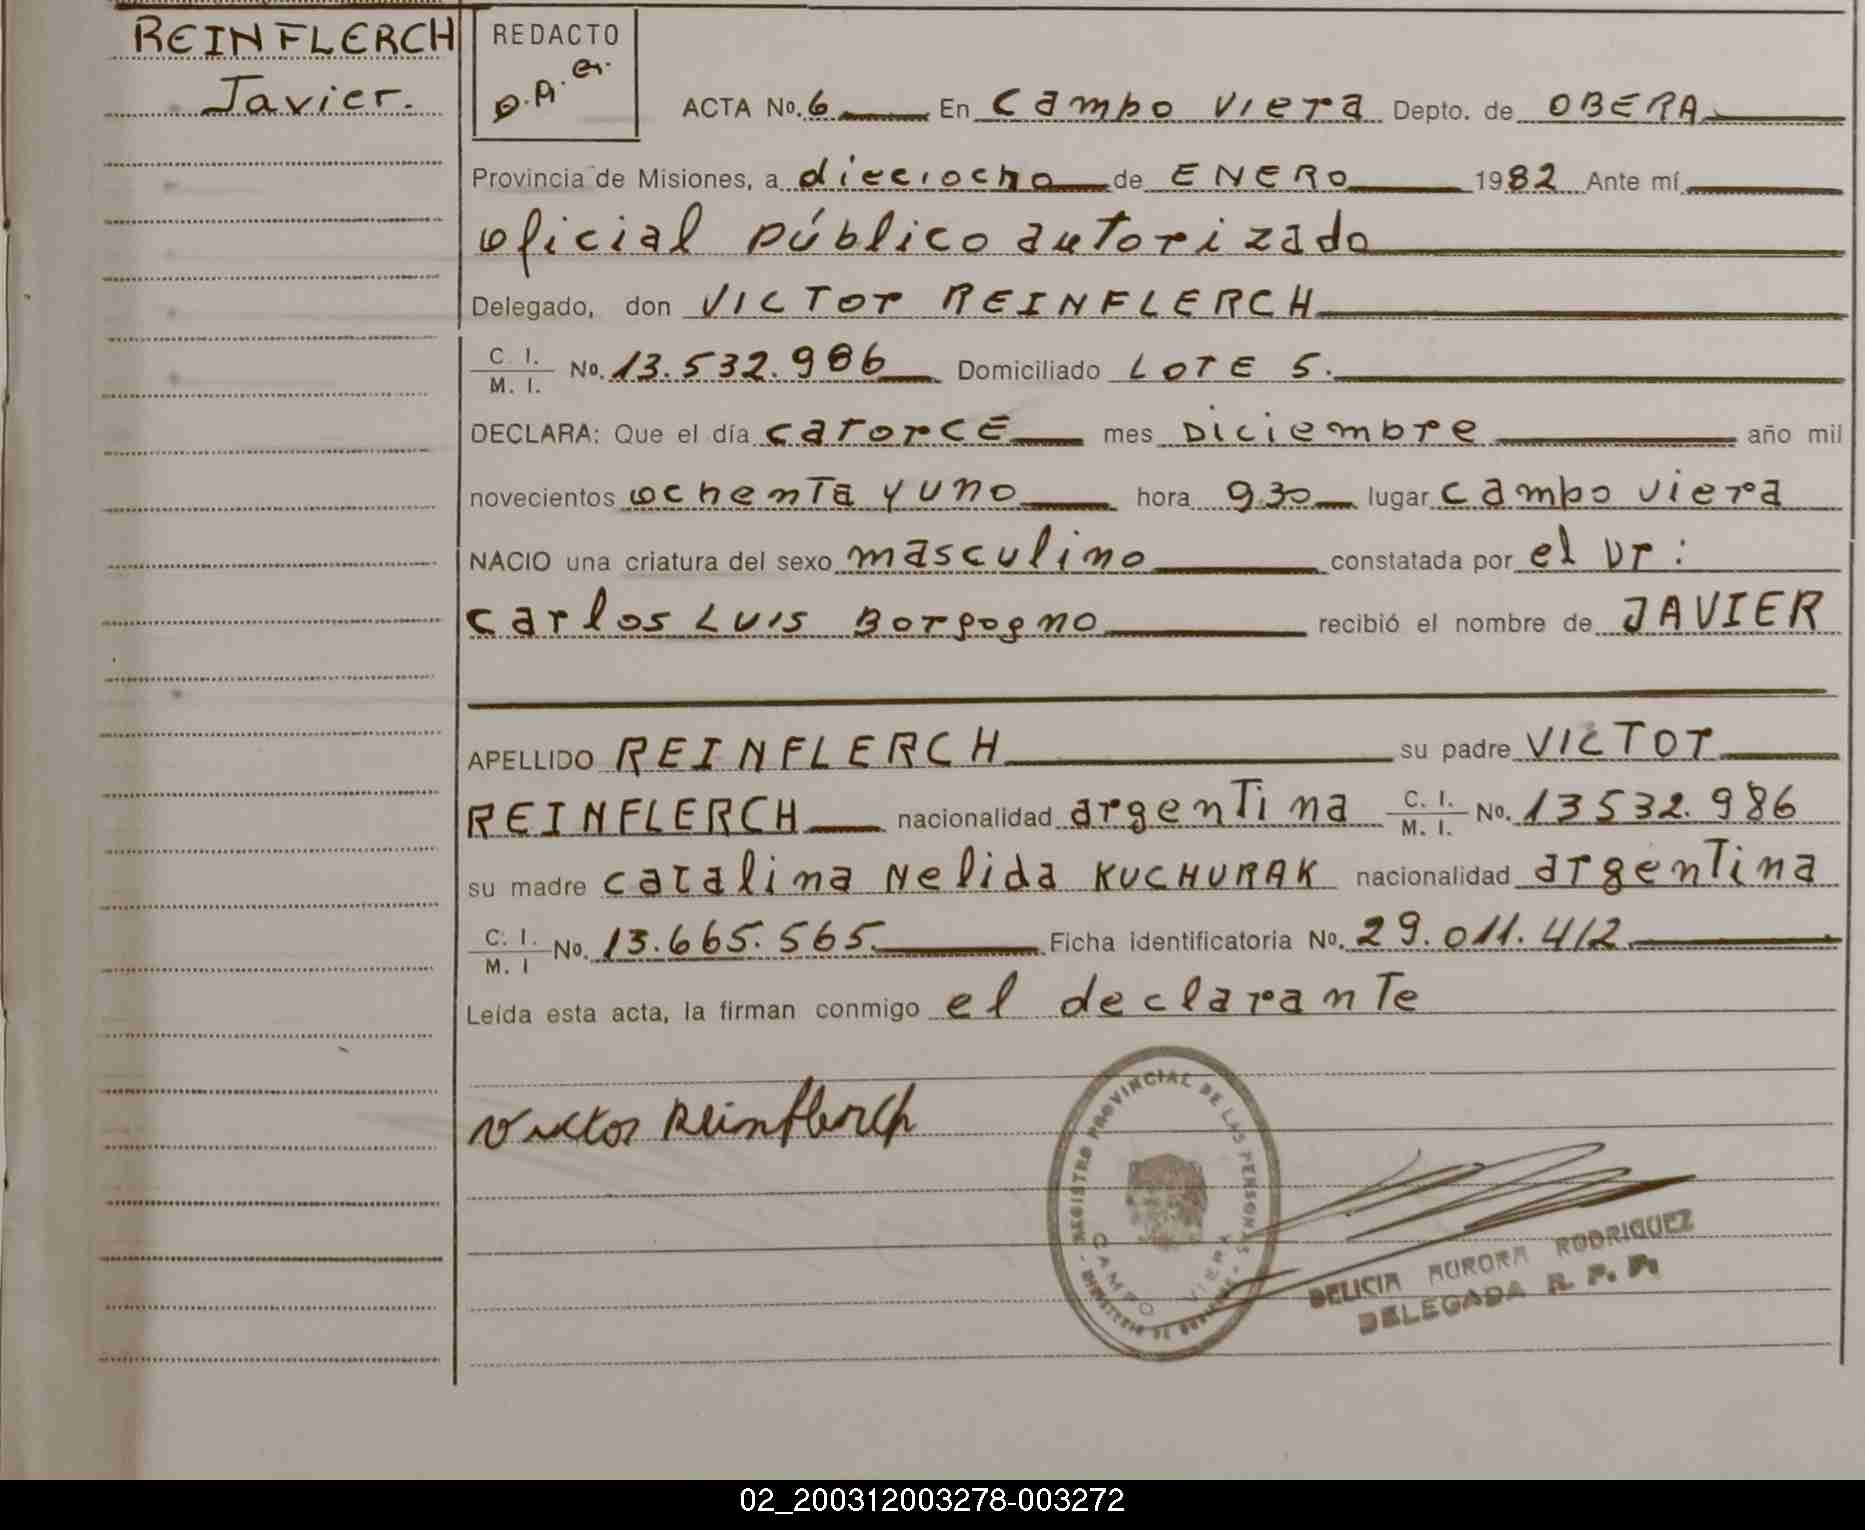 REINFLERCH
Javier.
REDACTO
D.A.R.
ACTA No. 6 En Campo Viera Depto. de OBERA
Provincia de Misiones, a dieciocho de ENERO 1982 Ante mí
oficial público autorizado
Delegado, don VICTOR REINFLERCH
C. I. / M. I. No. 13.532.986 Domiciliado LOTE 5.
DECLARA: Que el día CATORCE mes Diciembre año mil
novecientos ochenta y uno hora 9.30 lugar Campo Viera
NACIO una criatura del sexo masculino constatada por el Dr:
Carlos Luis Borgogno recibió el nombre de JAVIER
APELLIDO REINFLERCH su padre VICTOR
REINFLERCH nacionalidad argentina C. I. / M. I. No. 13532.986
su madre Catalina Nelida KUCHURAK nacionalidad argentina
C. I. / M. I No. 13.665.565. Ficha identificatoria No. 29.011.412
Leída esta acta, la firman conmigo el declarante
Victor Reinflerch
REGISTRO PROVINCIAL DE LAS PERSONAS
CAMPO VIERA
MINISTERIO DE GOBIERNO
DELICIA AURORA RODRIGUEZ
DELEGADA R. P. P.
02_200312003278-003272